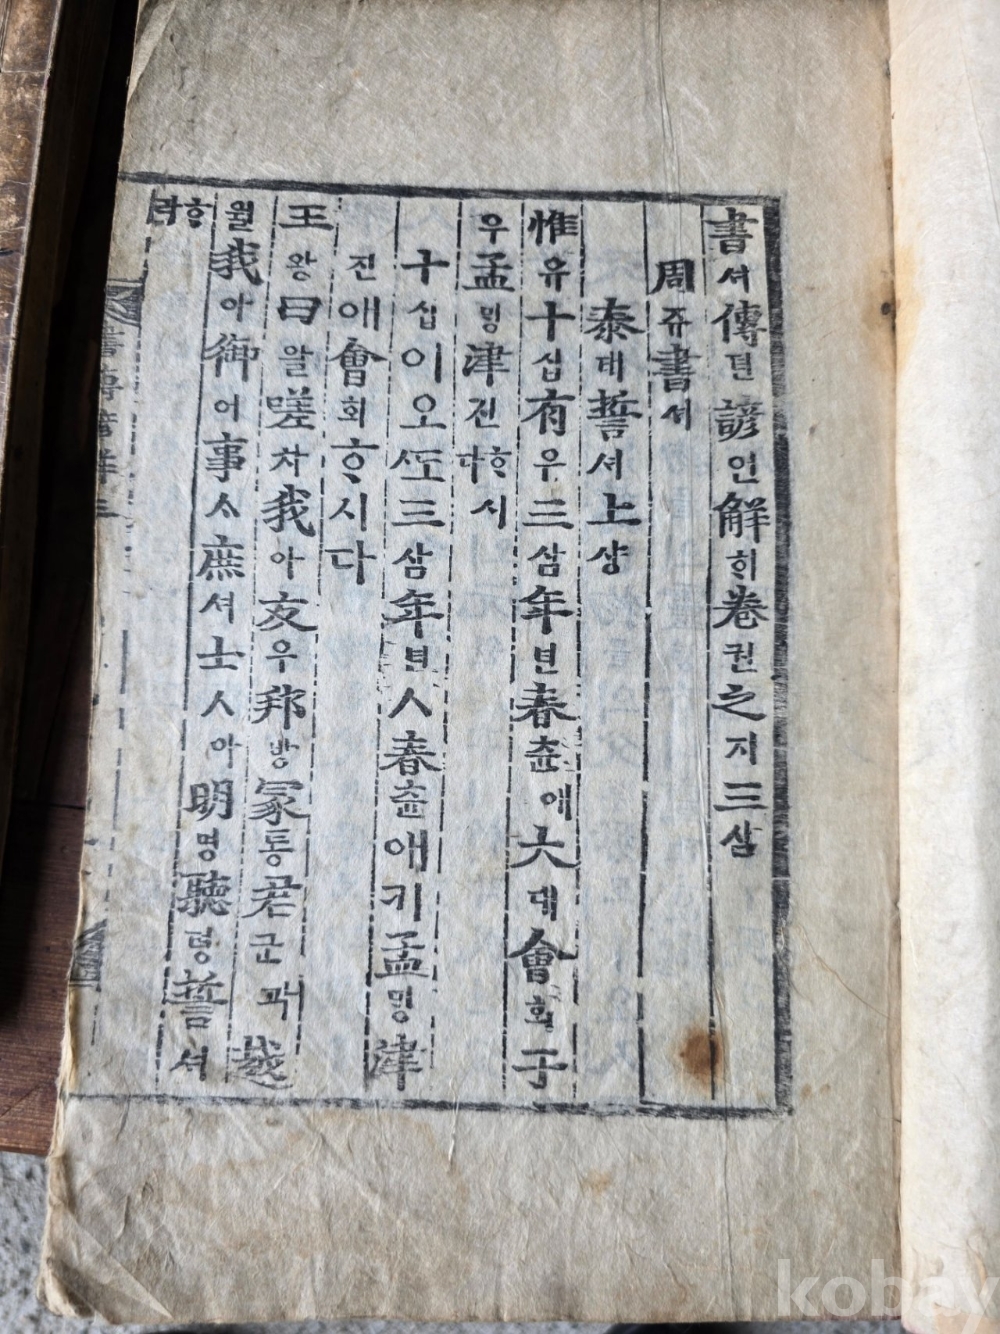 書셔傳뎐諺언解ᄒᆡ卷권之지三삼
周쥬書셔
泰태誓셔上샹
惟유十십有우三삼年년春츈애大대會회于
우孟밍津진ᄒᆞ시다
十십이오ᄯᅩ三삼年년ㅅ春츈애기孟밍津
진애會회ᄒᆞ시다
王왕曰왈嗟차我아友우邦방冢통君군과越
월我아御어事ᄉᆞ庶셔士ᄉᆞ아明명聽텽誓셔
ᄒᆞ라
書傳諺解 三
kobay